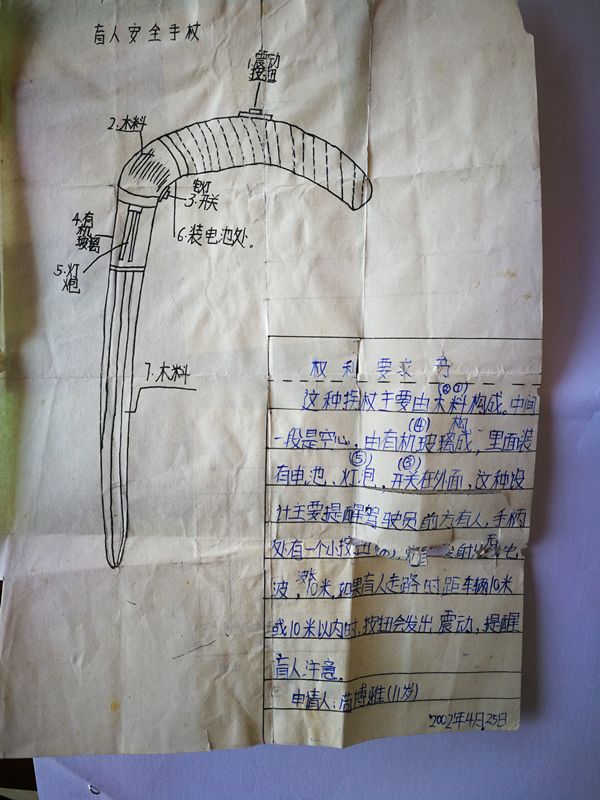 盲人安全手杖
1.震动
按钮
2.木料
3.开关
4.有
机
玻璃
6.装电池处。
5.灯
炮
7.木料
权利要求书
这种拐杖主要由木料构成。中间
(②⑦)
一段是空心,由有机玻璃构成,里面装
(④)
有电池、灯泡,开关在外面,这种设
(⑤) (③)
计主要提醒驾驶员前方有人,手柄
处有一个小按
波,10米,如果盲人走路时距车辆10米
或10米以内时,按钮会发出震动,提醒
盲人注意。
申请人:博雅(11岁)
2002年4月25日